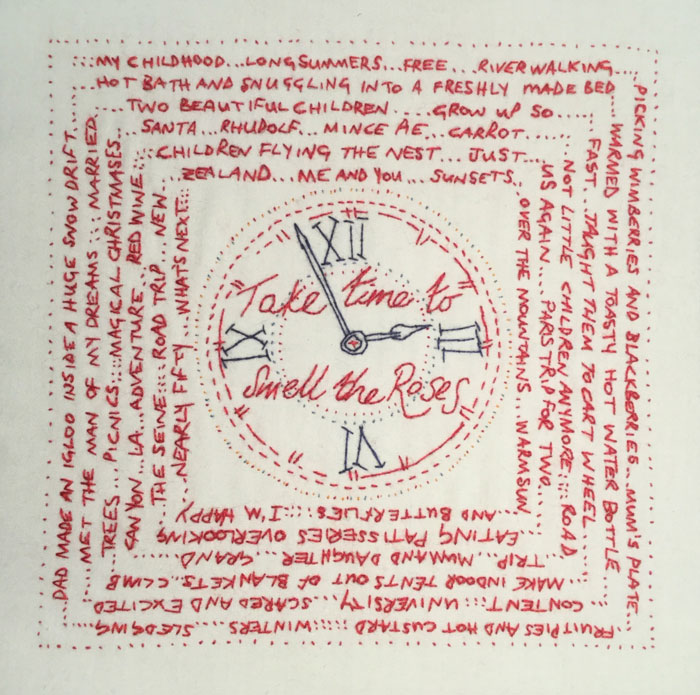 :::MY CHILDHOOD...LONG SUMMERS...FREE...RIVER WALKING....
PICKING WIMBERRIES AND BLACKBERRIES...MUM'S PLATE
FRUIT PIES AND HOT CUSTARD :::::WINTERS....SLEDGING
DAD MADE AN IGLOO INSIDE A HUGE SNOW DRIFT...
HOT BATH AND SNUGGLING INTO A FRESHLY MADE BED
WARMED WITH A TOASTY HOT WATER BOTTLE...
CONTENT:::UNIVERSITY...SCARED AND EXCITED
MET THE MAN OF MY DREAMS ::: MARRIED
...TWO BEAUTIFUL CHILDREN....GROW UP SO.....
FAST...TAUGHT THEM TO CART WHEEL
MAKE INDOOR TENTS OUT OF BLANKETS..CLIMB
TREES...PICNICS:::MAGICAL CHRISTMASES...
SANTA...RHUDOLF...MINCE PIE...CARROT......
NOT LITTLE CHILDREN ANYMORE:::ROAD
TRIP...MUM AND DAUGHTER...GRAND
CANYON..LA...ADVENTURE..RED WINE...
:::CHILDREN FLYING THE NEST...JUST....
US AGAIN....PARIS TRIP FOR TWO...
EATING PATISSERIES OVERLOOKING
THE SEINE:::ROAD TRIP...NEW
...ZEALAND...ME AND YOU...SUNSETS..
OVER THE MOUNTAINS...WARM SUN
AND BUTTERFLIES::::I'M HAPPY
...NEARLY FIFTY...WHATS NEXT:::
XII
"Take time to
IX III
Smell the Roses"
VI